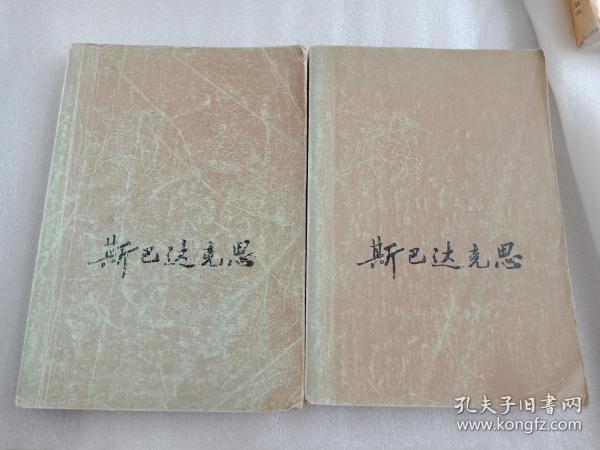 斯巴达克思
斯巴达克思
孔夫子旧書网
www.kongfz.com